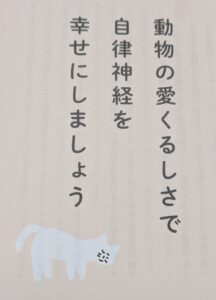 動物の愛くるしさで
自律神経を
幸せにしましょう